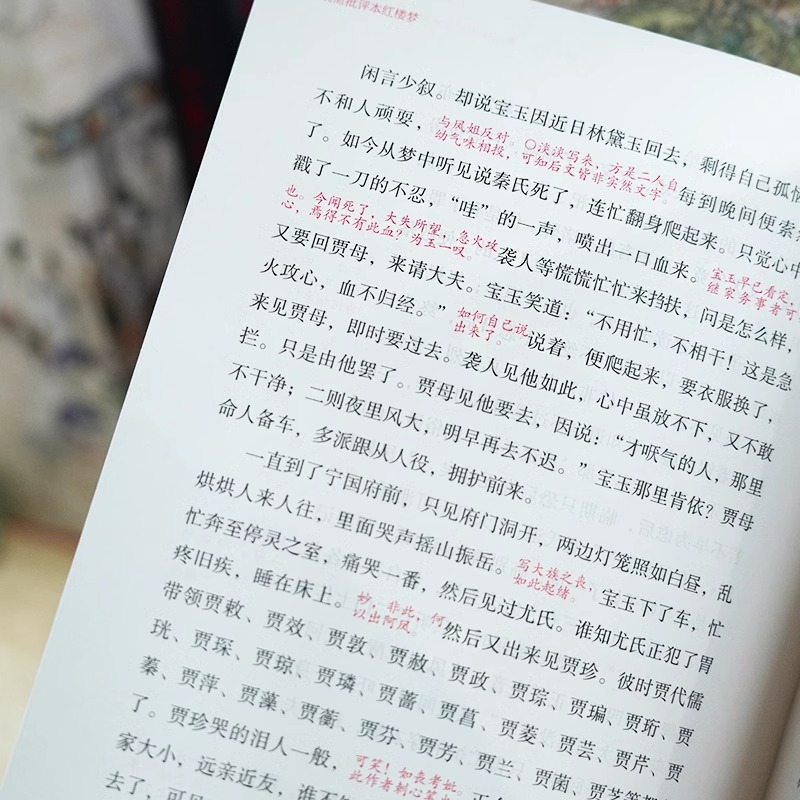 批评本红楼梦
闲言少叙。却说宝玉因近日林黛玉回去，剩得自己孤
不和人顽耍，
与凤姐反对。○淡淡写来，方是二人自
幼气味相投，可知后文皆非突然文字。
每到晚间便索
了。如今从梦中听见说秦氏死了，连忙翻身爬起来。只觉心中
戳了一刀的不忍，“哇”的一声，喷出一口血来。
宝玉早已看定，
继家务事者可
也。今闻死了，大失所望，急火攻
心，焉得不有此血？为玉一叹。
袭人等慌慌忙忙来挡扶，问是怎么样，
又要回贾母，来请大夫。宝玉笑道：“不用忙，不相干！这是急
火攻心，血不归经。”
如何自己说
出来了。
说着，便爬起来，要衣服换了，
来见贾母，即时要过去。袭人见他如此，心中虽放不下，又不敢
拦。只是由他罢了。贾母见他要去，因说：“才咽气的人，那里
不干净；二则夜里风大，明早再去不迟。”宝玉那里肯依？贾母
命人备车，多派跟从人役，拥护前来。
一直到了宁国府前，只见府门洞开，两边灯笼照如白昼，乱
烘烘人来人往，里面哭声摇山振岳。
写大族之丧，
如此起绪。
宝玉下了车，忙
忙奔至停灵之室，痛哭一番，然后见过尤氏。谁知尤氏正犯了胃
疼旧疾，睡在床上。
妙，非此，何
以出阿凤。
然后又出来见贾珍。彼时贾代儒
带领贾敕、贾效、贾敦、贾赦、贾政、贾琮、贾㻞、贾珩、贾
珖、贾琛、贾琼、贾璘、贾蔷、贾菖、贾菱、贾芸、贾芹、贾
蓁、贾萍、贾藻、贾蘅、贾芬、贾芳、贾兰、贾菌、贾芝等都
了。贾珍哭的泪人一般，
可笑！如丧考妣，
此作者刺心笔
家大小，远亲近友，谁不
去了，可见